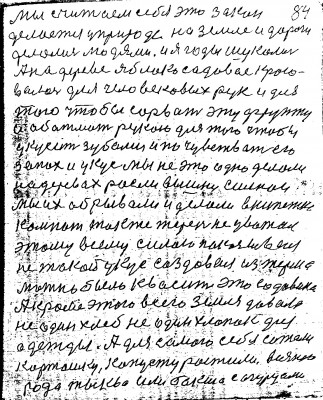 мы считаем себя это закон 84
делается природе на земле и даром
делался людями. и ягоды шиколат
А на дереве яблоко садовое красо-
валось для человековых рук и для
того чтобы сорвать эту фрукту
Работают рукою для того чтобы
укусить зубами и почувствовать его
запах и укус мы не это одно делали
на деревах росли вишни сливы
мы их обрывали и делали в кипятке
компот также терен не уважал
этому всему силами
не такой укус создавал из терна
можно было квасить это создавала
А кроме этого всего земля давала
не один хлеб не один хлопок для
одежды. А для самого себя сажали
картошку, капусту растили, всякого
рода тыкво или